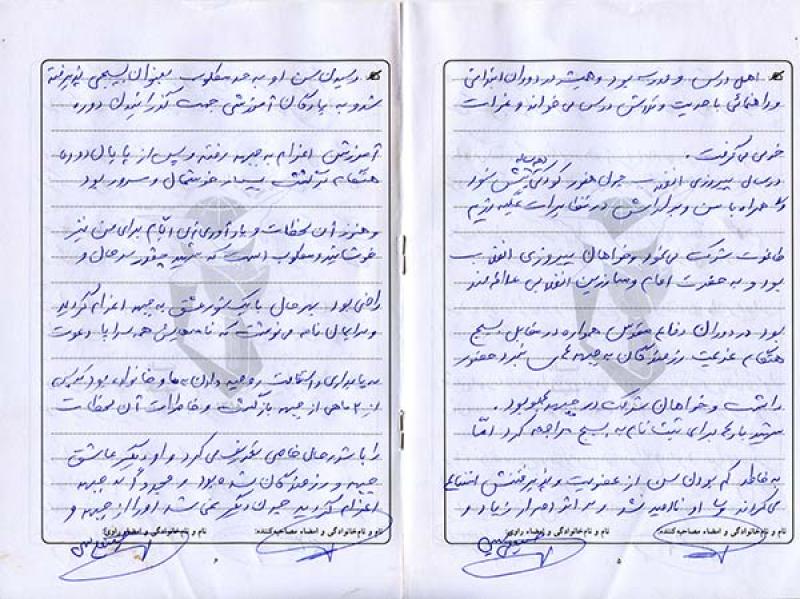 اهل درس و مدرسه بود و همیشه در دوران ابتدائی
و راهنمائی با جدیت و تلاش درس می خواند و نمرات
خوبی می گرفت.
در سال پیروزی انقلاب چون هنوز کودکی بیش نبود
همراه با من و برادرانش در تظاهرات علیه رژیم
طاغوت شرکت می نمود و خواهان پیروزی انقلاب
بود و به حضرت امام و مبارزین انقلابی علاقمند
بود. در دوران دفاع مقدس همواره در مقابل بسیج
هنگام عزیمت رزمندگان به جبهه های نبرد حضور
داشت و خواهان شرکت در جبهه بود.
شهید بارها برای ثبت نام به بسیج مراجعه کرد امّا
به خاطر کم بودن سن از عضویت و پذیرفتنش امتناع
می کردند ولی او ناامید نشد و بر اثر اصرار زیاد و
نام و نام خانوادگی و امضاء مصاحبه کننده:
نام و نام خانوادگی و امضاء راوی:
۵
رسیدن سن او به حد مطلوب بعنوان بسیجی پذیرفته
شد و به پادگان آموزشی جهت گذرانیدن دوره
آموزش اعزام به جبهه رفته و پس از پایان دوره
هنگام بازگشت بسیار خوشحال و مسرور بود
و هنوز آن لحظات و یادآوری آن ایّام برای من نیز
خوشایند و مطلوب است که شهید چقدر سرحال و
راضی بود. بهرحال با یک شور عشق به جبهه اعزام گردید
و برایمان نامه می نوشت که نامه هایش همه سراپا دعوت
به پایداری و استقامت روحیه دادن به ما و خانواده بود
از ۳ ماهی از جبهه بازگشت و خاطرات آن لحظات
را با شور حال خاصی تعریف می کرد و او دیگر عاشق
جبهه و رزمندگان شده بود و مجدداً به جبهه
اعزام گردید چون دیگر نمی شد او را از جبهه و
نام و نام خانوادگی و امضاء مصاحبه کننده:
نام و نام خانوادگی و امضاء راوی:
۶